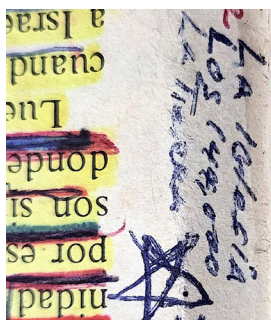 nidad
por es
son si
donde
Lue
cuand
a Israe
LA IGLESIA
LOS 144,000